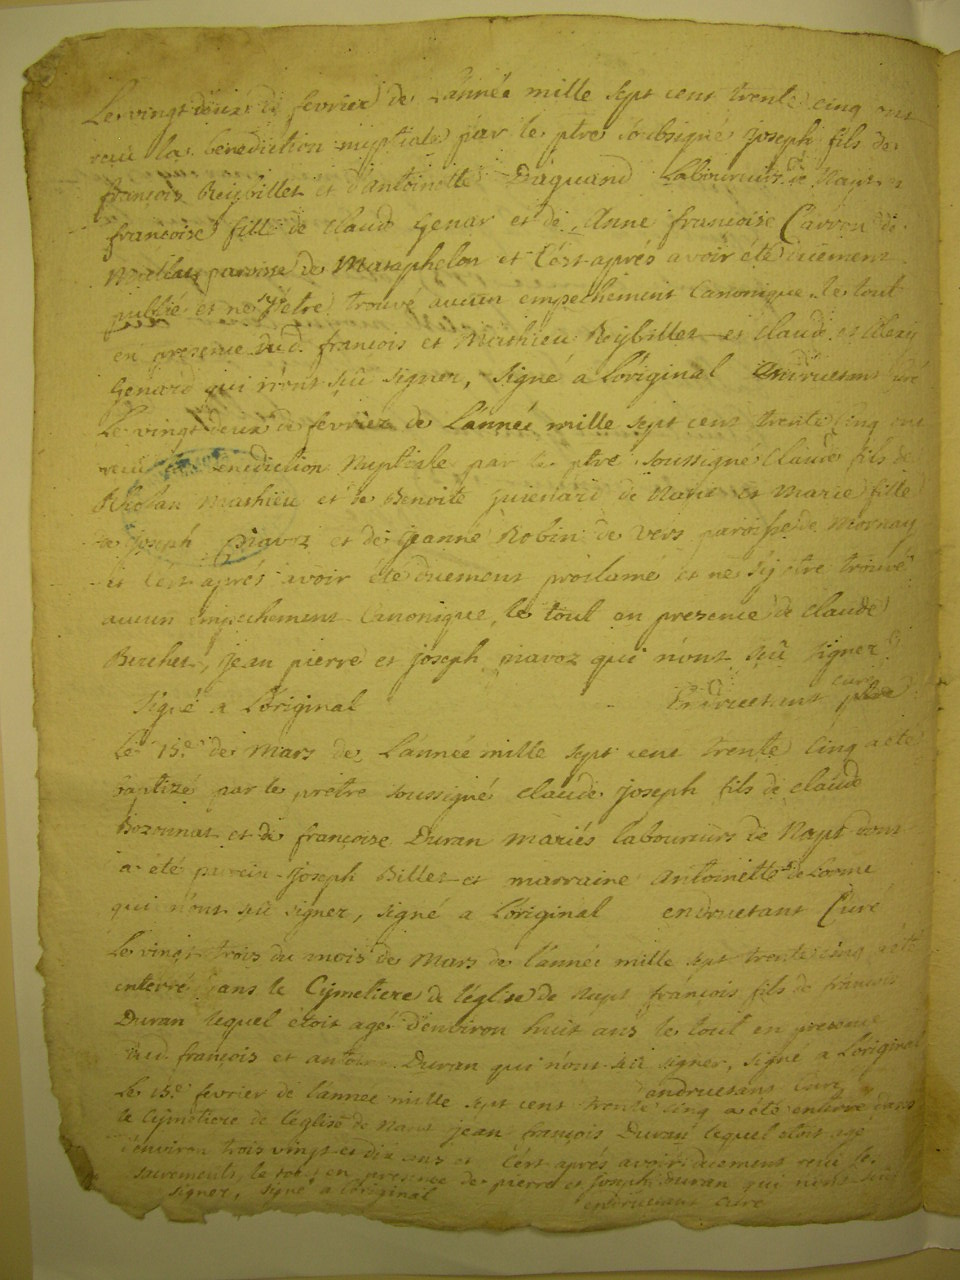 Le vingt deux de fevrier de L'année mille sept cent trente cinq ont
recu la benediction nuptiale par le ptre soubsigné joseph fils de
françois Reybillet et d'antoinette Daquand Laboureurs de Napt et
françoise fille de Claud Genar et de Anne françoise Carron de
parroisse de Mataphelon et C'est aprés avoir été duement
publié et ne s'y etre trouvé aucun empechement Canonique. le tout
en presence dud. françois et Mathieu Reybillet et Claude et
Genard qui n'ont sçû signer, signé a L'original Andruetant curé
Le vingt deux de fevrier de L'année mille sept cent trente Cinq ont
recu benediction Nuptiale par le ptre soussigné Claude fils de
Mathieu et de Benoite guienard de Napt et Marie fille
de joseph piavoz et de jeanne Robin de Vers paroisse de Mornay
et C'est aprés avoir été duement proclamé et ne s'ÿ etre trouvé
aucun empechement Canonique, le tout en presence de Claude
Berchet, jean pierre et joseph piavoz qui n'ont sçû signer
signé a L'original Endruetant curé
Le 15.e de Mars de L'année mille sept cent trente Cinq a été
baptizé par le pretre soussigné Claude joseph fils de Claud
Bozonnat et de françoise Duran mariés laboureurs de Napt dont
a été parrein joseph Billet et marraine Antoinette de Lorme
qui n'ont sçû signer, signé a L'original endruetant Curé
Le vingt trois du mois de Mars de l'année mille sept trente cinq a été
enterré dans le Cÿmetiere de l'église de Napt françois fils de françois
Duran lequel etoit agé d'environ huit ans le tout en presence
dud. françois et Duran qui n'ont sçû signer, signé a L'original
andruetant Curé
Le 15.e fevrier de l'année mille sept cent trente Cinq a été enterré dans
le Cÿmetiere de l'église de Napt jean françois Duran lequel etoit agé
d'environ trois vingt et dix ans et C'est aprés avoir duement recu les
sacrements, le tout en presence de pierre et joseph Duran qui n'ont sçû
signer, signé a L'original endruetant Curé